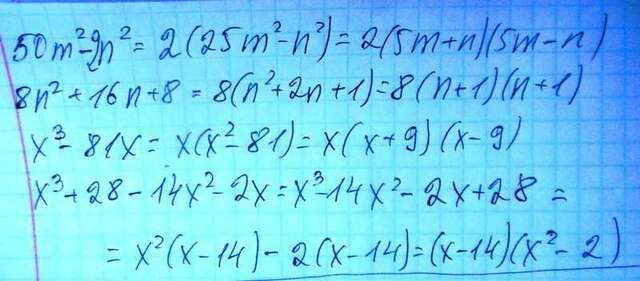 50m²-2n² = 2(25m²-n²) = 2(5m+n)(5m-n)
8n²+16n+8 = 8(n²+2n+1) = 8(n+1)(n+1)
x³-81x = x(x²-81) = x(x+9)(x-9)
x³+28-14x²-2x = x³-14x²-2x+28 =
= x²(x-14)-2(x-14) = (x-14)(x²-2)